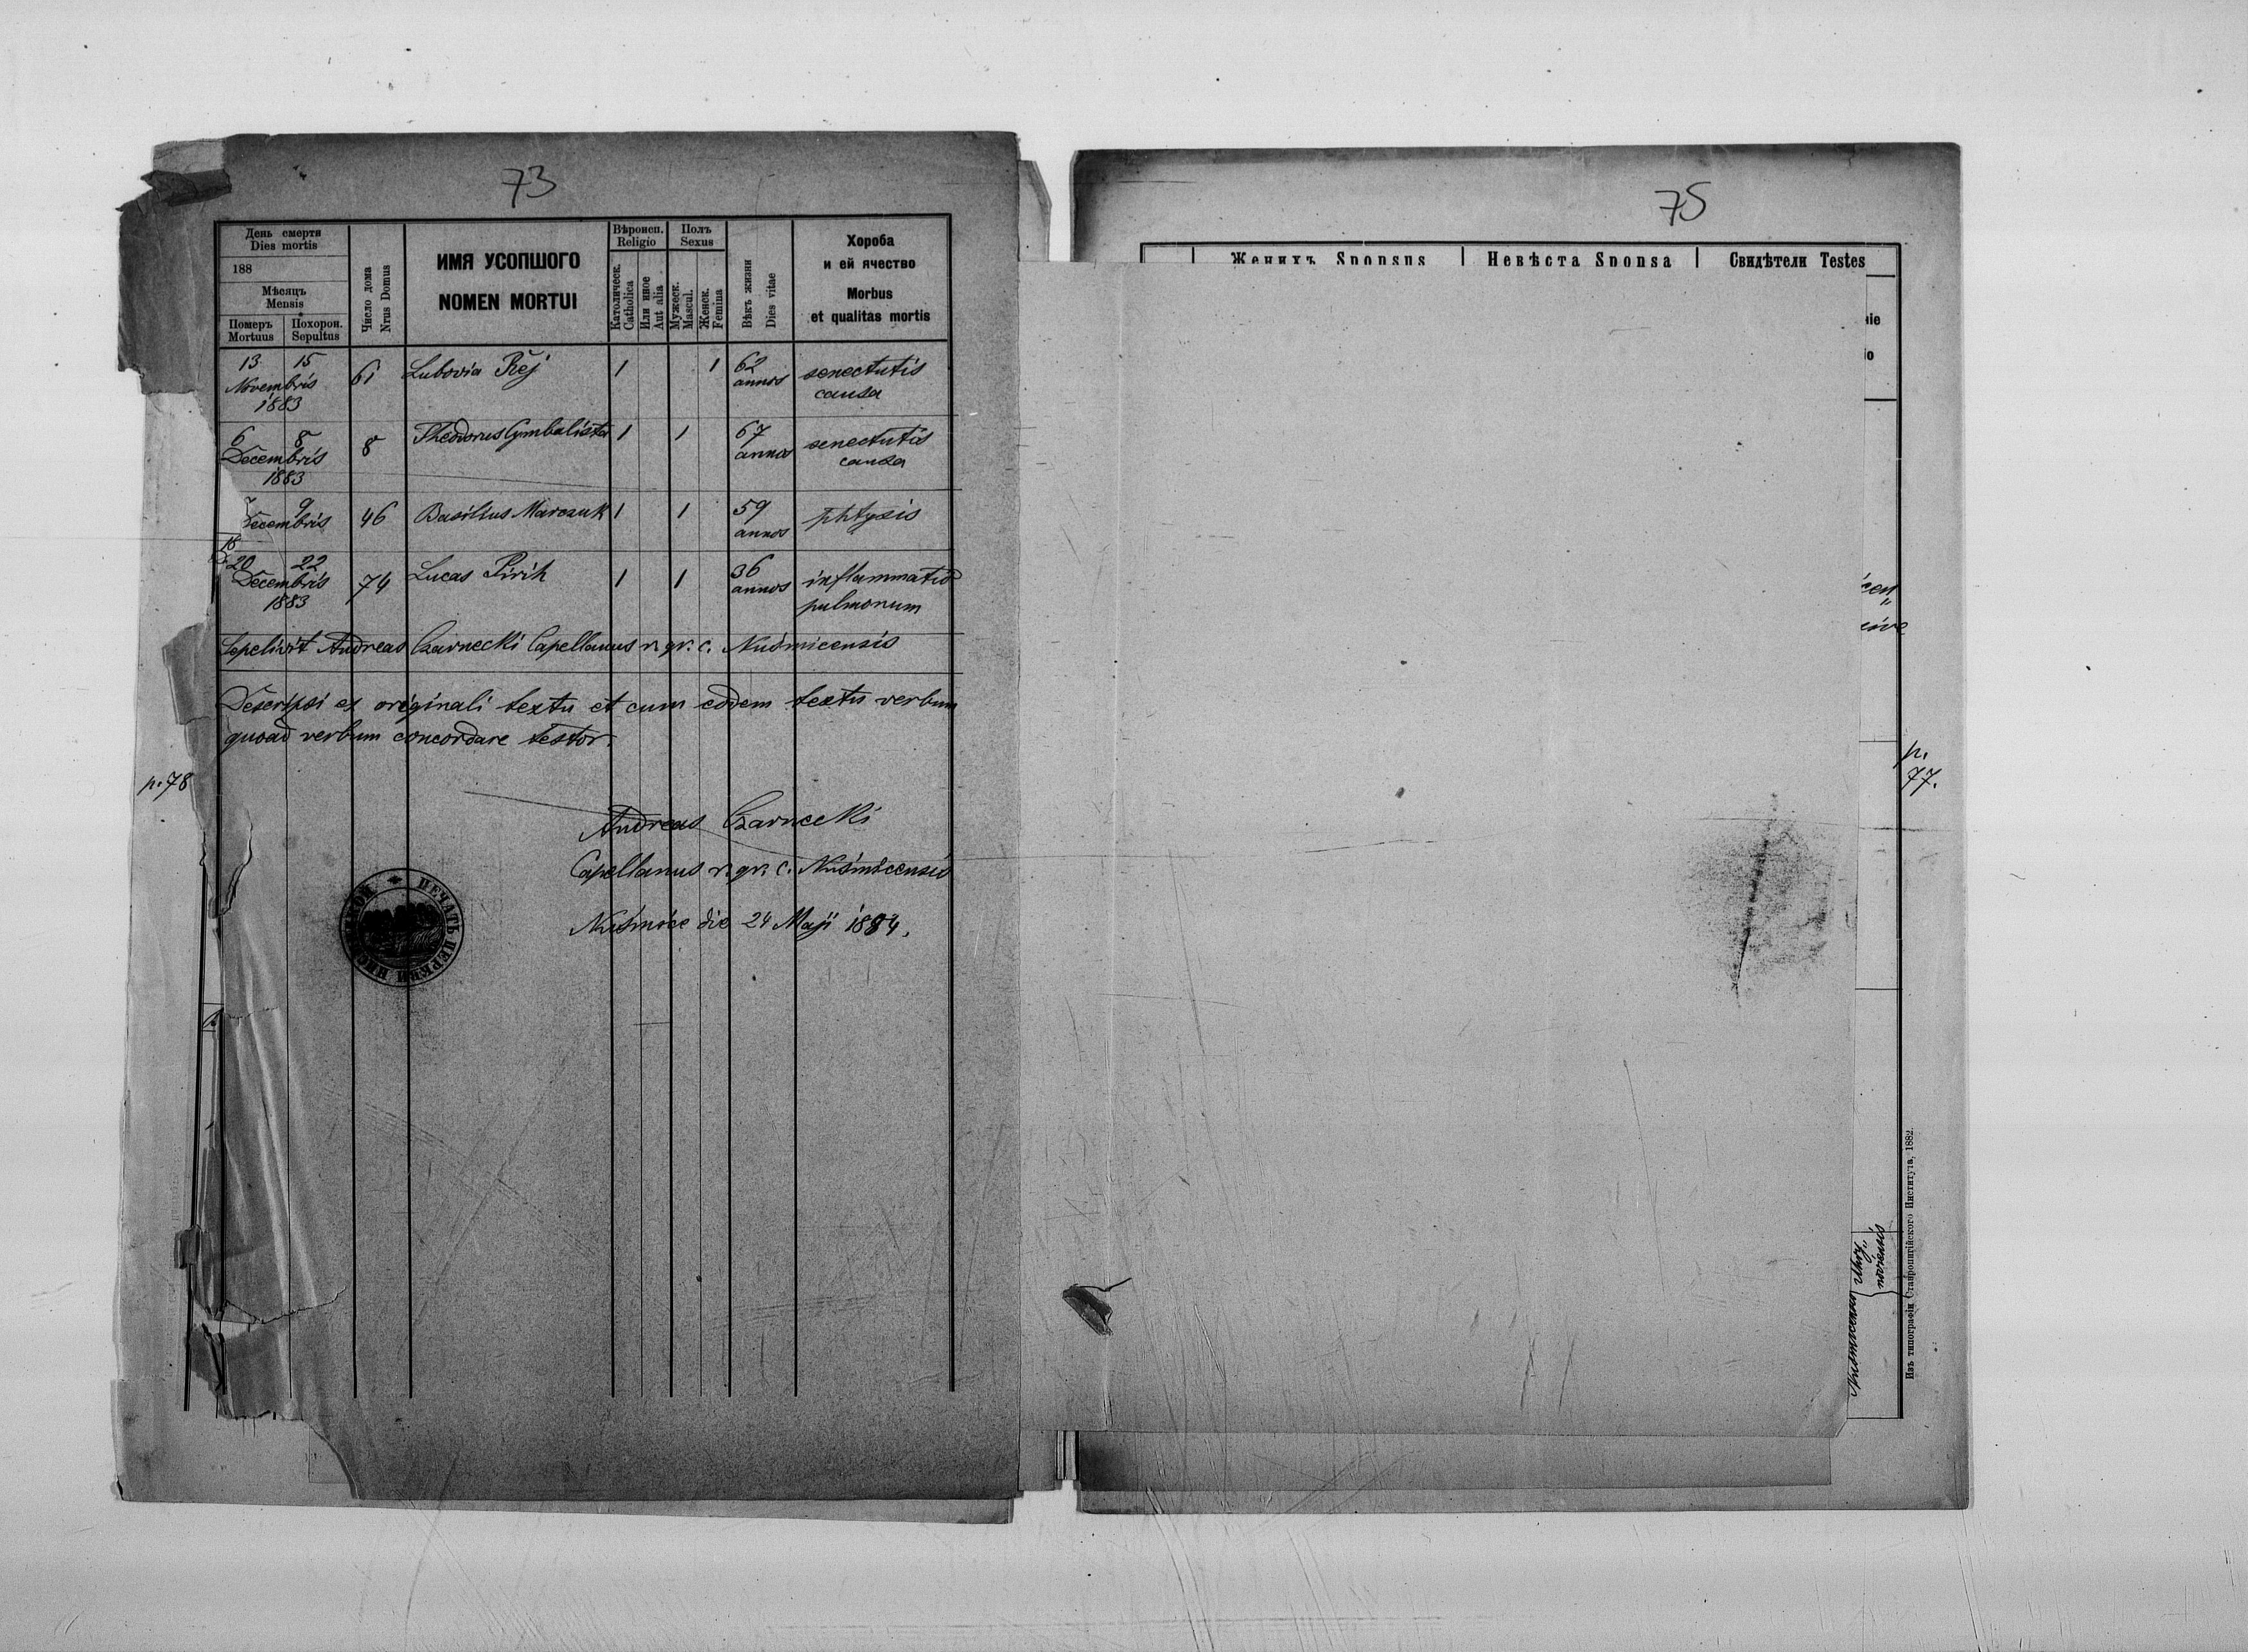 73
День смерти
Dies mortis
188
Мѣсяцъ
Mensis
Померъ
Mortuus
Похорон.
Sepultus
Число дома
Nrus Domus
ИМЯ УСОПШОГО
NOMEN MORTUI
Вѣроисп.
Religio
Католическ.
Catholica
Или иное
Aut alia
Полъ
Sexus
Мужеск.
Mascul.
Женск.
Femina
Вѣкъ жизни
Dies vitae
Хороба
и ей ячество
Morbus
et qualitas mortis
13 15 Novembris 1883 61 Lubovia Rěj 1 1 62 annos senectutis causa
6 8 Decembris 1883 8 Theodorus Cymbalista 1 1 67 annos senectutis causa
7 9 Decembris 46 Basilius Marczuk 1 1 59 annos phtysis
20 22 Decembris 1883 74 Lucas Pirih 1 1 36 annos inflammatio pulmonum
Sepelivit Andreas Czarnecki Capellanus r. gr. c. Nuśmicensis
Descripsi ex originali textu et cum eodem textu verbum
quoad verbum concordare testor.
p. 78
Andreas Czarnecki
Capellanus r. gr. c. Nuśmicensis
Nuśmice die 24 Maji 1884.
ПЕЧАТЬ ЦЕРКВИ
75
Женихъ Sponsus
Невѣста Sponsa
Свидѣтели Testes
p.
77.
Nuśmicensis
Изъ типографіи Ставропигійского Института, 1882.